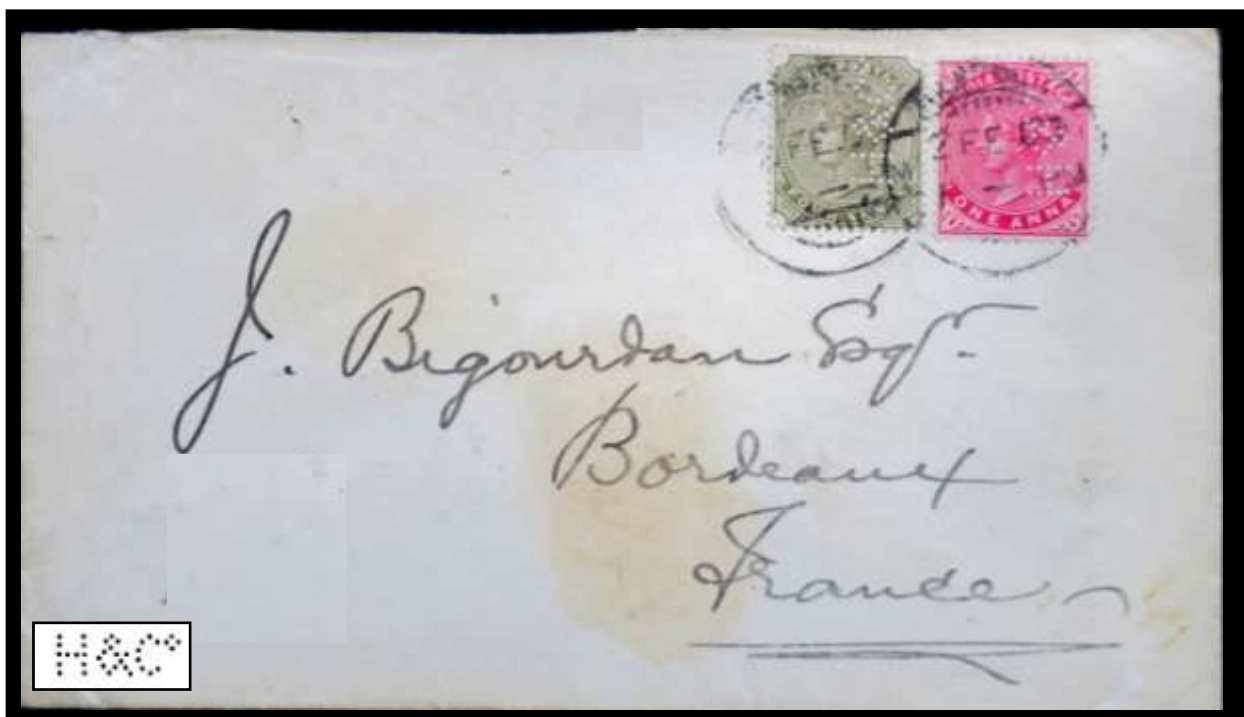 FE 03
ONE ANNA
J. Bigourdan Esqr.
Bordeaux
France
H&Co